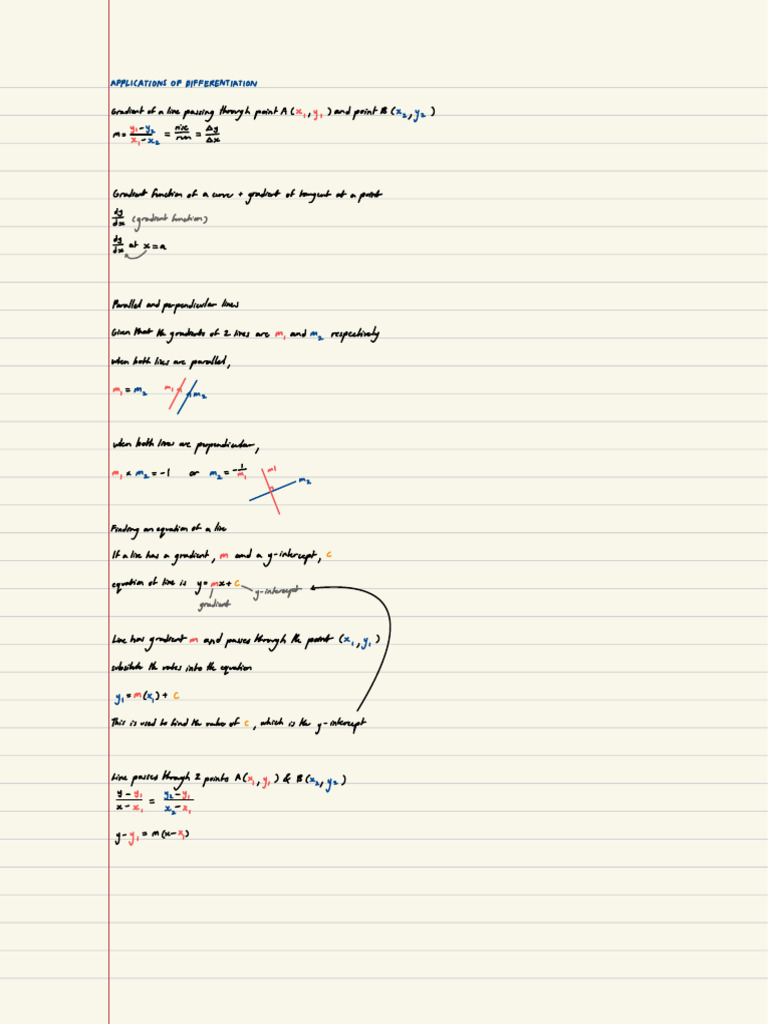 APPLICATIONS OF DIFFERENTIATION
Gradient of a line passing through point A (x₁, y₁) and point B (x₂, y₂)
m = (y₁-y₂)/(x₁-x₂) = rise/run = Δy/Δx
Gradient function of a curve + gradient of tangent at a point
dy/dx (gradient function)
dy/dx at x=a
Parallel and perpendicular lines
Given that the gradients of 2 lines are m₁ and m₂ respectively
when both lines are parallel,
m₁ = m₂ m₁ m₂
when both lines are perpendicular,
m₁ × m₂ = -1 or m₂ = -1/m₁ m1 m₂
Finding an equation of a line
If a line has a gradient, m and a y-intercept, c
equation of line is y=mx+c y-intercept
gradient
Line has gradient m and passes through the point (x₁, y₁)
substitute the values into the equation
y₁ = m(x₁) + c
This is used to find the value of c, which is the y-intercept
Line passes through 2 points A(x₁, y₁) & B(x₂, y₂)
(y-y₁)/(x-x₁) = (y₂-y₁)/(x₂-x₁)
y-y₁ = m(x-x₁)